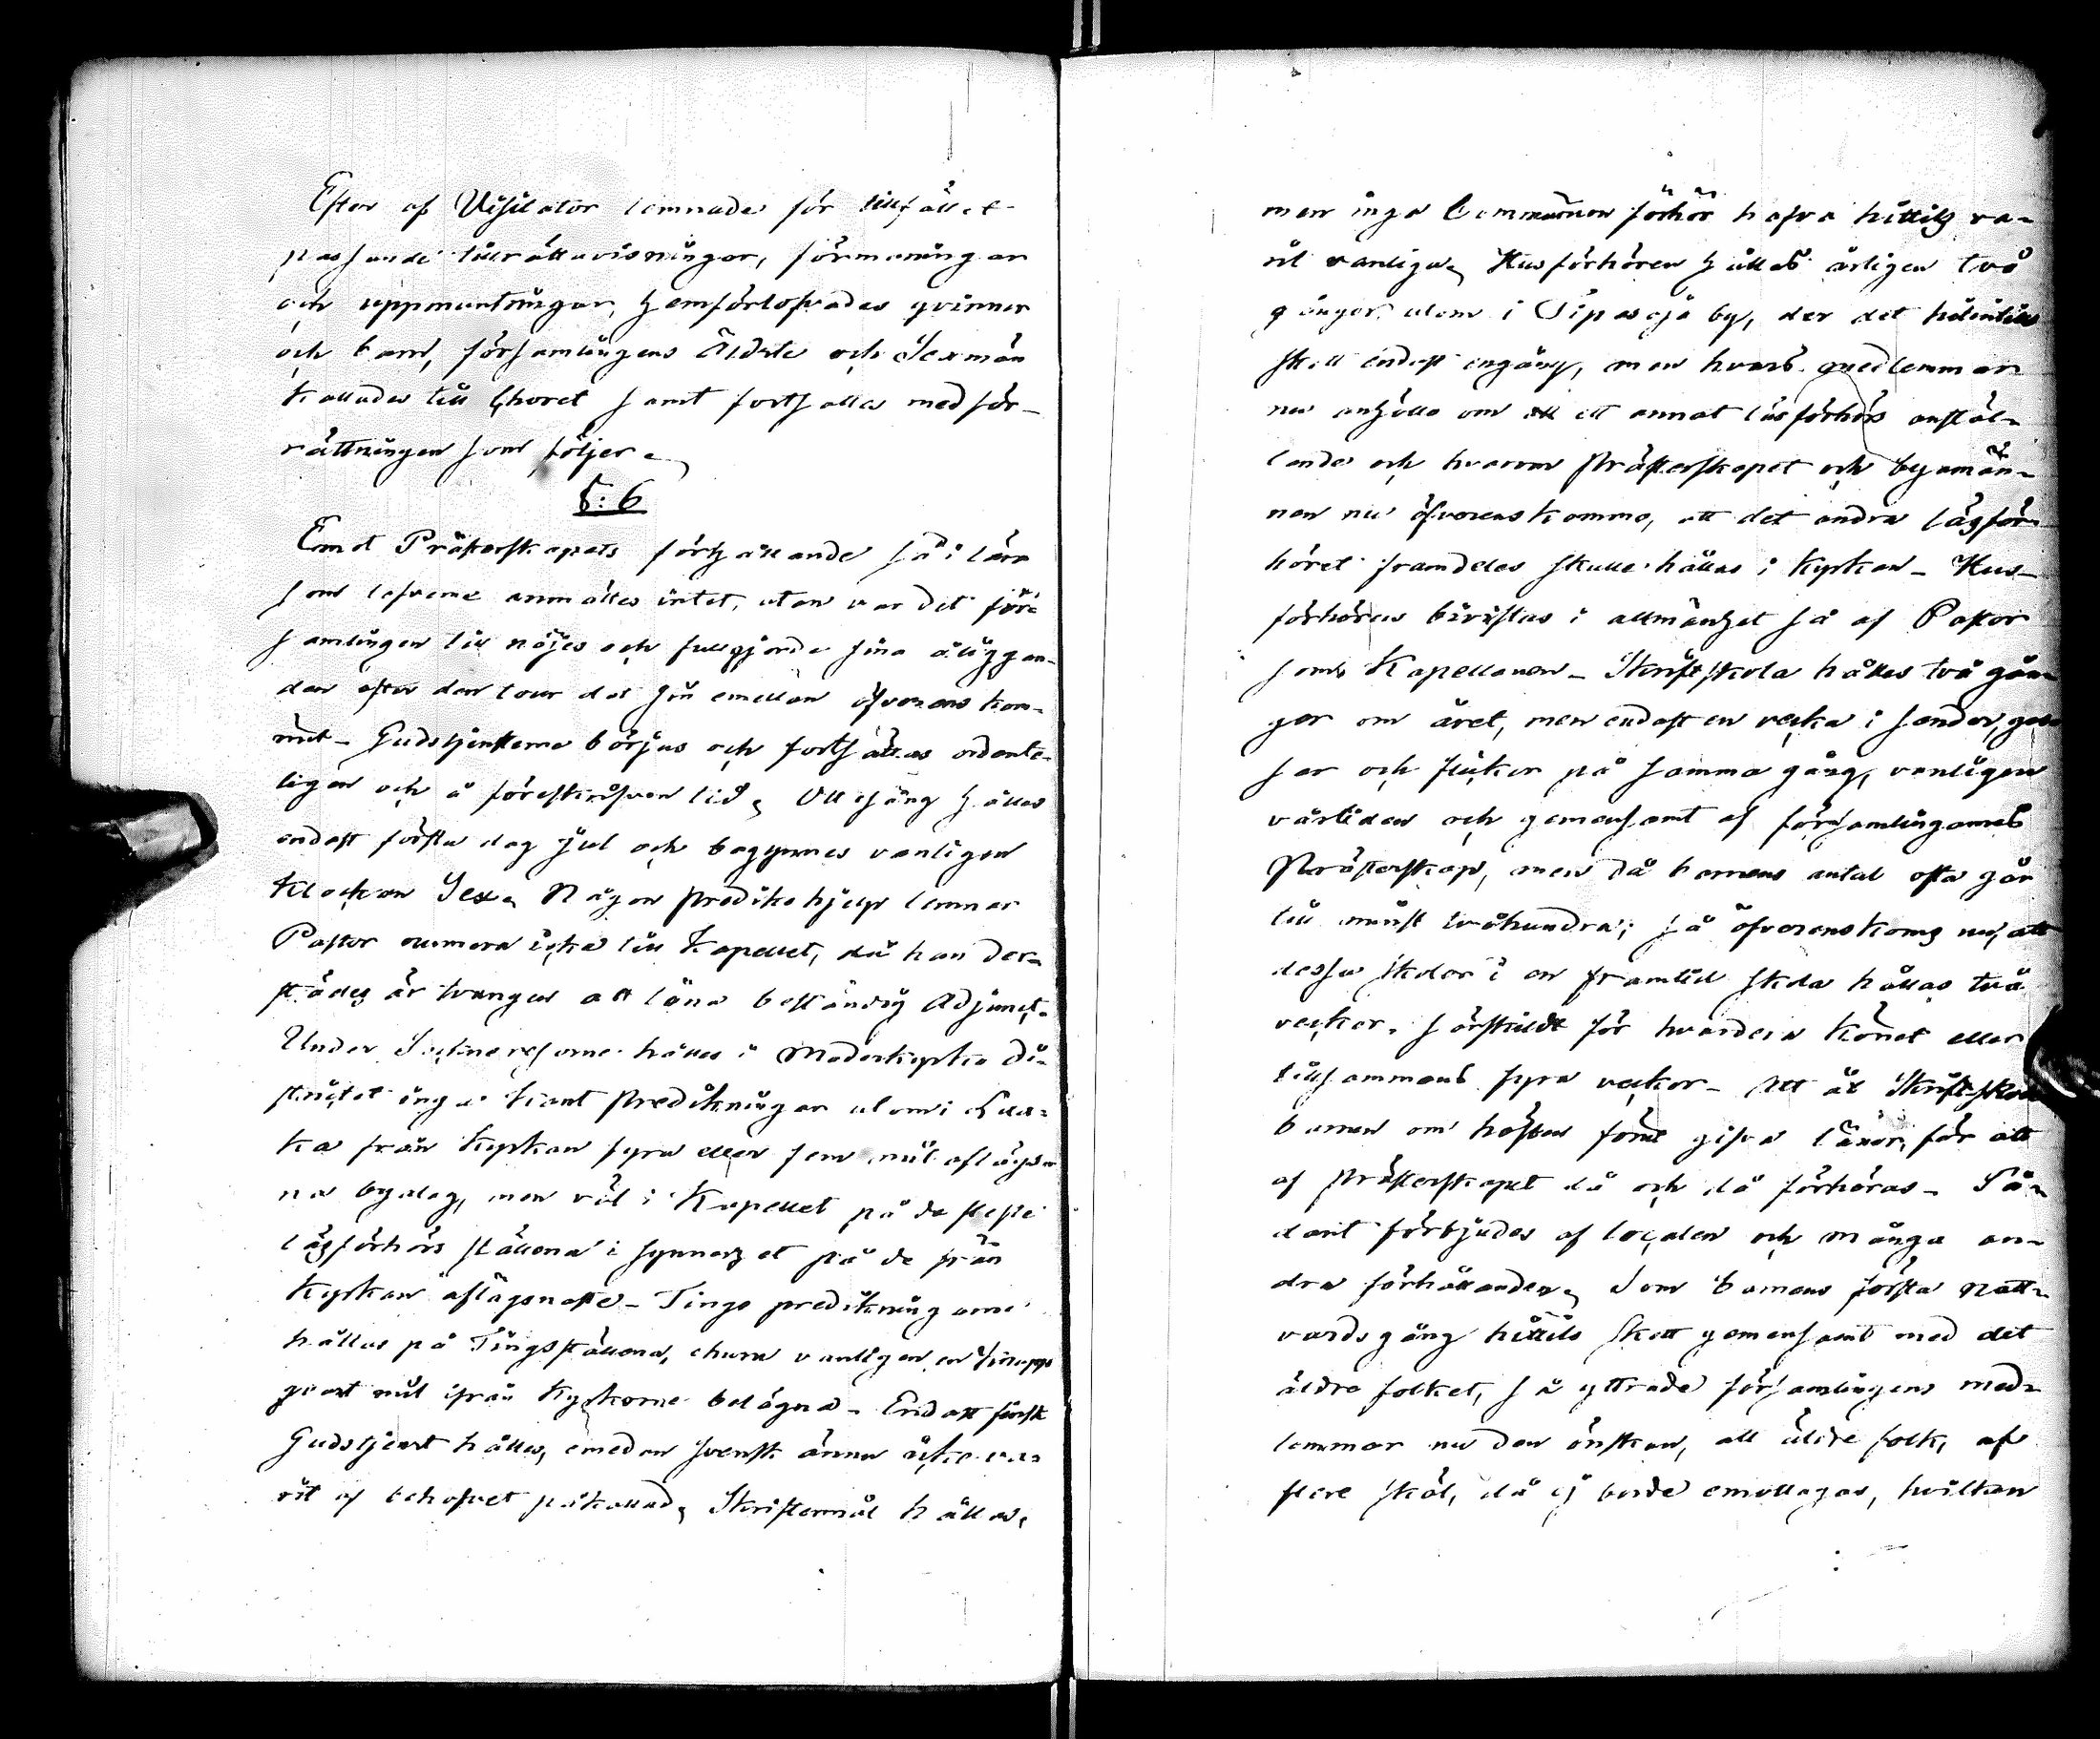 Efter af Visitator lemnade för tillfället
passande tillrättavisningar, förmaningar
och uppmuntringar, hemförlofvades qvinnor
och barn, församlingens Äldste och Sexmän
kallades till Choret samt fortsattes med för-
rättningen som följer.
§: 6
Emot Prästerskapets förhållande så i lära
som lefverne anmältes intet, utan var det för-
samlingen till nöjes och fullgjorde sina åliggan-
den efter den tour det sin emellan öfverens kom-
mit - Gudstjensterne börjas och fortsättas ordente-
ligen och å föreskrifven tid, Ottesång hålles
endast första dag Jul och begynnes vanligen
klockan Sex. Någon predikohjelp lemnar
Pastor numera icke till Kapellet, då han der-
städes är tvungen att löna beständig Adjunct.
Under hålles i Moderkyrko Di-
strictet inga predikningar utom i
ka från Kyrkan fyra eller fem mil aflägs-
na byalag, men väl i Kapellet på de fleste
läsförhörs ställena i synnerhet på de från
Kyrkan aflägsnaste - Tings predikningarne
hållas på Tingsställena, ehuru vanligen en
mil ifrån Kyrkorne belägna - Endast finsk
Gudstjenst hålles, emedan svensk ännu icke va-
rit af behofvet påkallad, Skriftermål hållas,
men inga Communion förhör hafva hittils va-
rit vanliga, Husförhören hållas årligen två
gånger utom i Tipasoja by, der det hitintills
skett endast engång, men hvars medlemmar
nu anhölla om ett annat läsförhörs anstäl-
lande och hvarom Prästerskapet och byamän-
nen nu öfverenskommo, att det andra läsför-
höret framdeles skulle hållas i Kyrkan - Hus-
förhören bivistas i allmänhet så af Pastor
som Kapellanen - Skriftskola hålles två gån-
ger om året, men endast en vecka i sender,
sar och flickor på samma gång, vanligen
vårtiden och gemensamt af församlingarnes
Prästerskap, men då barnens antal ofta går
till minst tvåhundra; så öfverenskoms nu, att
dessa skolor i en framtid skola hållas två
veckor, särskildt för hvardera könet eller
tillsammans fyra veckor - Att åt Skriftskole
barnen om hösten förut gifva läxor, för att
af Prästerskapet då och då förhöras - Så-
dant förbjudes af localen och många an-
dra förhållanden, Som barnens första Natt-
vardsgång hittils skett gemensamt med det
äldre folket, så yttrade församlingens med-
lemmar nu den önskan, att äldre folk, af
flere skäl, då ej borde emottagas, hvilken